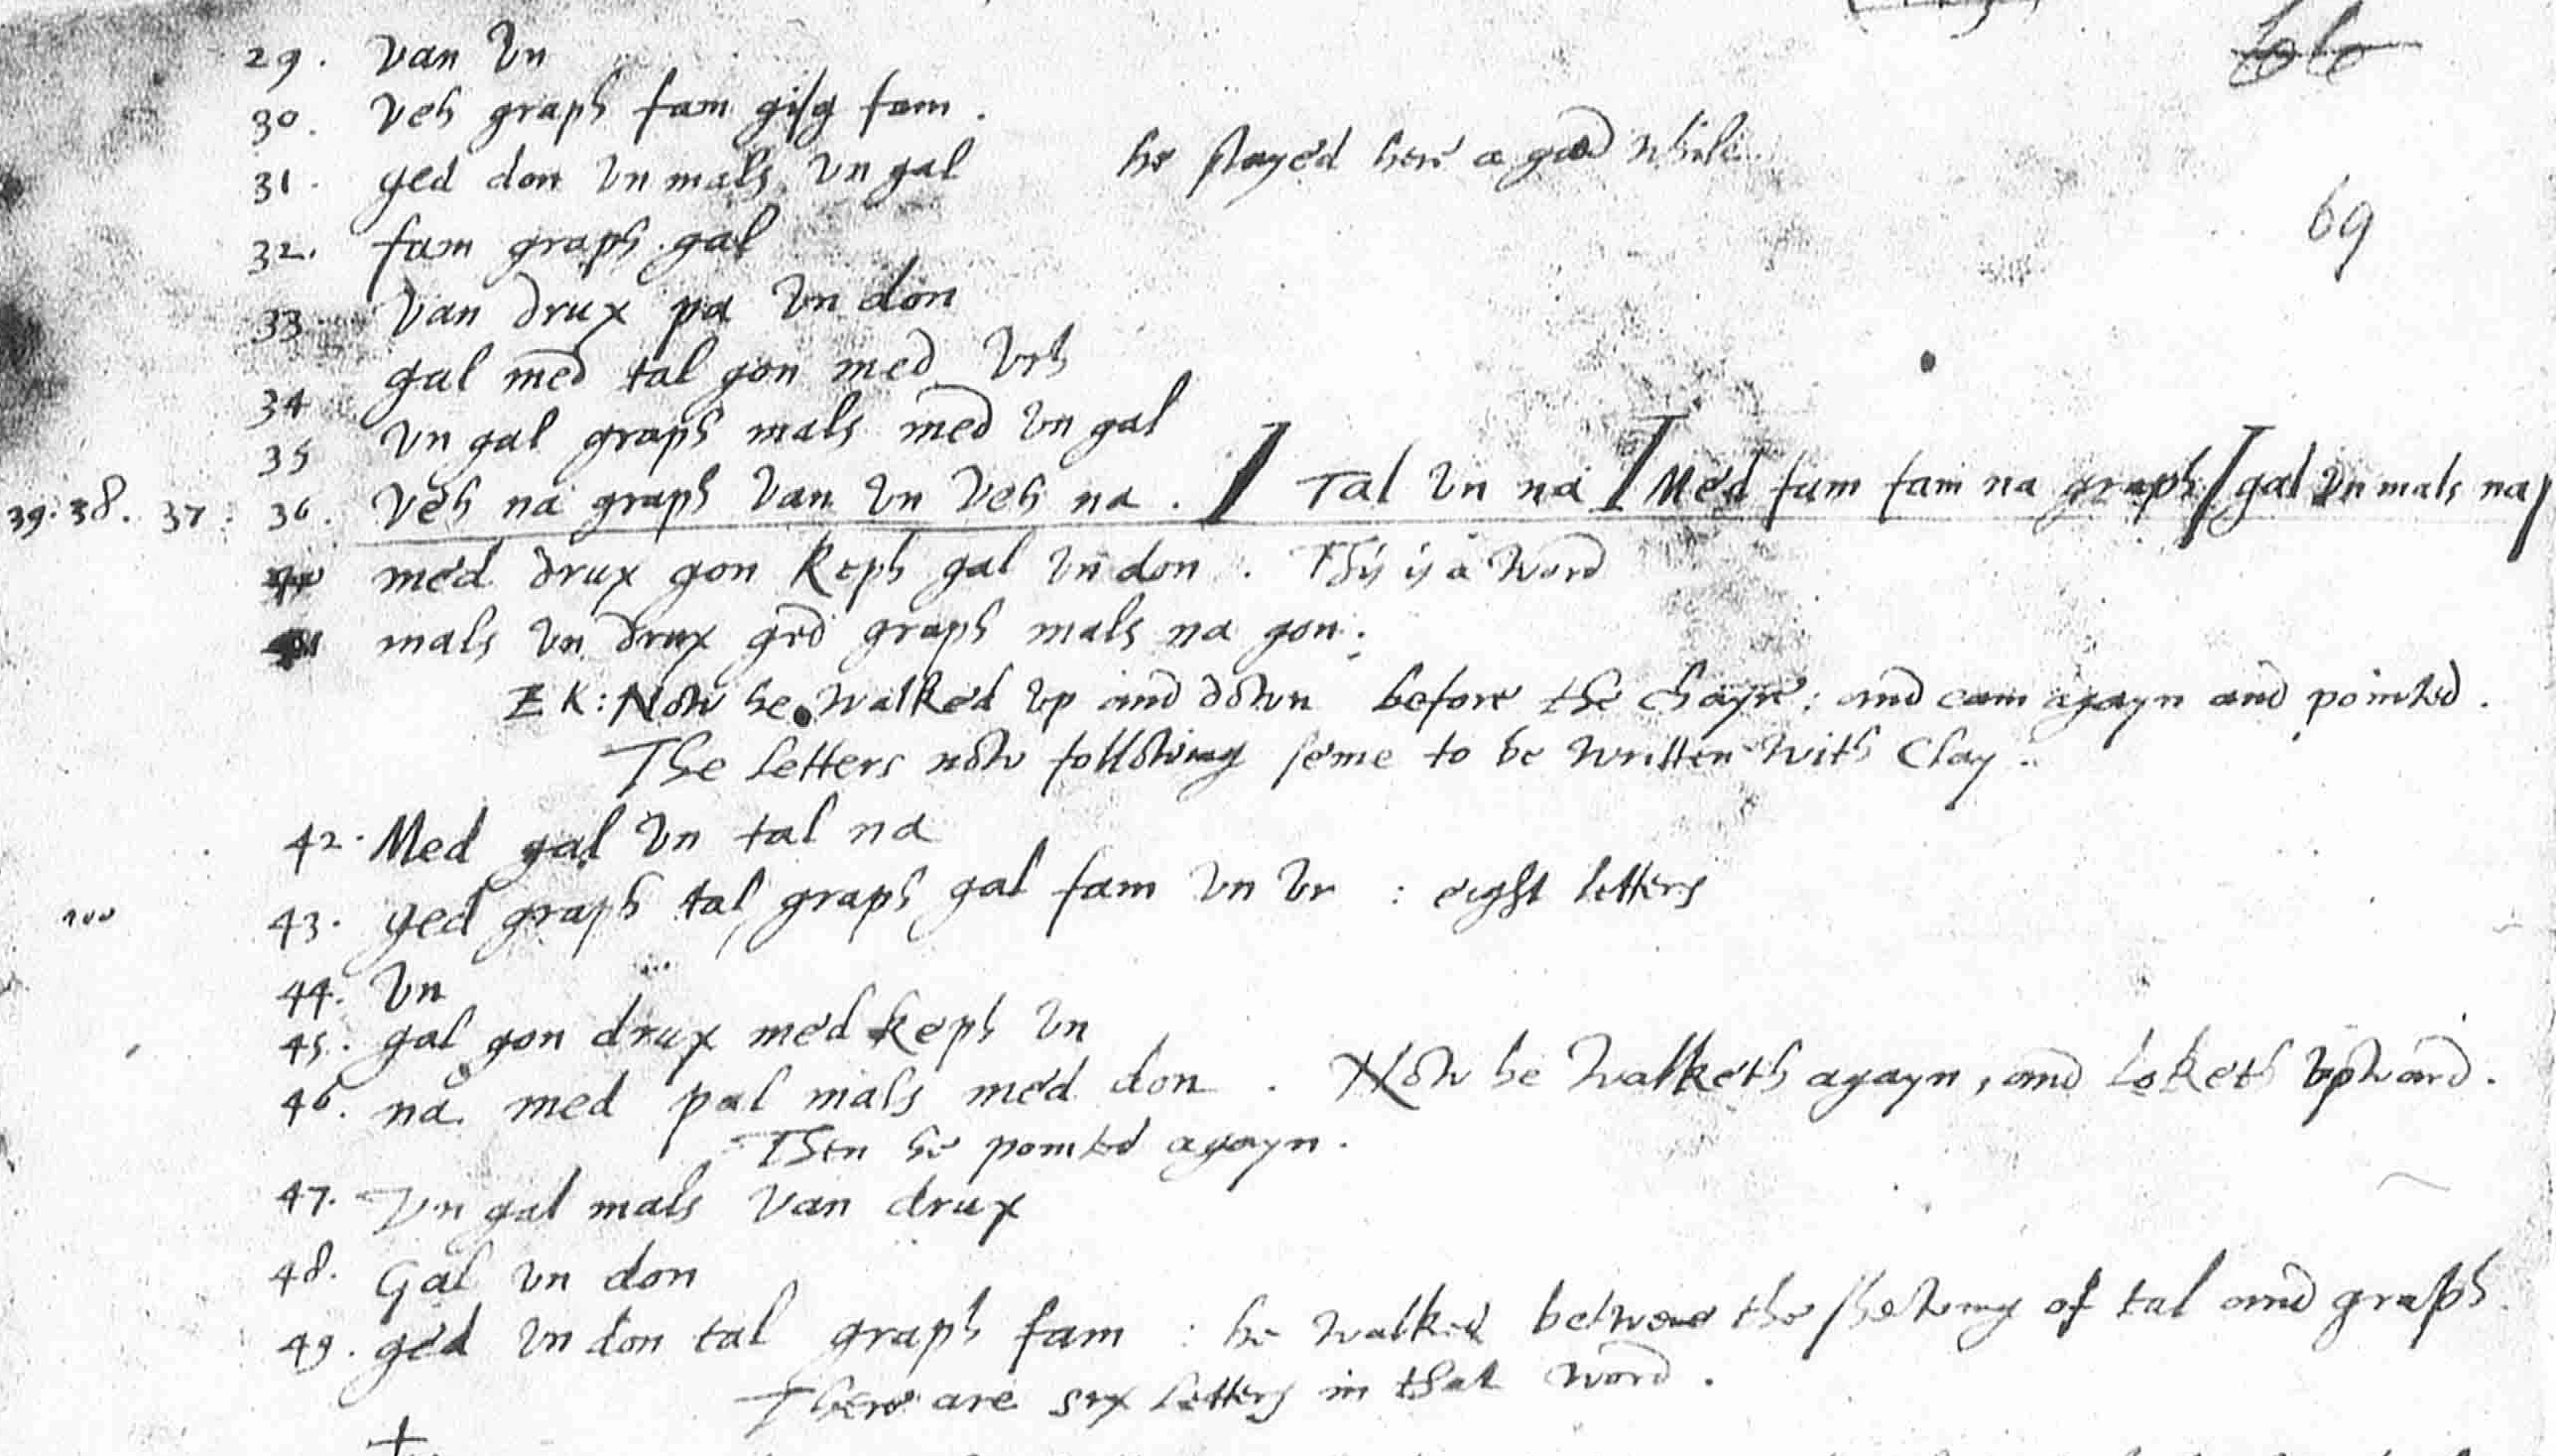 29. van vn
30. veh graph fam gisg fam.
31. ged don vn mals vn gal he stayed here a good while.
32. fam graph gal
69
33 van drux pa vn don
34 gal med tal gon med vrh
35 vn gal graph mals med vn gal
39. 38. 37: 36. veh na graph van vn veh na. / Tal vn na / Med fam fam na graph / gal vn mals na /
med drux gon keph gal vn don. This is a word
mals vn drux ged graph mals na gon:
EK: Now he walked vp and down before the chayre: and cam agayn and pointed.
The letters now following seme to be written with Clay.
42. Med gal vn tal na
43. ged graph tal, graph gal fam vn vr : eight letters
44. vn
45. gal gon drux med keph vn
46. na med pal mals med don. Now he walketh agayn, and loketh vpward.
Then he pointed agayn.
47. Vn gal mals van drux
48. Gal vn don
49. ged vn don tal graph fam : he walked betwene the shewing of tal and graph.
There are six letters in that word.